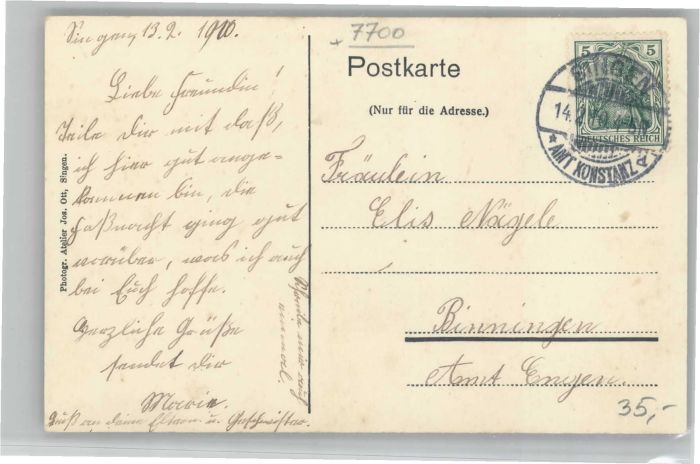 Singen, 13.2. 1910.
Liebe Freundin!
Teile Dir mit daß,
ich hier gut ange-
kommen bin, die
Faßnacht ging gut
vorüber, was ich auch
bei Euch hoffe.
Herzliche Grüße
sendet Dir
Marie.
Gruß an deine Eltern u. Geschwister.
Schreibe mir auch
einmal.
Photogr. Atelier Jos. Ott, Singen.
7700
Postkarte
(Nur für die Adresse.)
5 5
DEUTSCHES REICH
SINGEN
14.2.10
* AMT KONSTANZ
Fräulein
Elis Nägele
Binningen
Amt Engen.
35,-